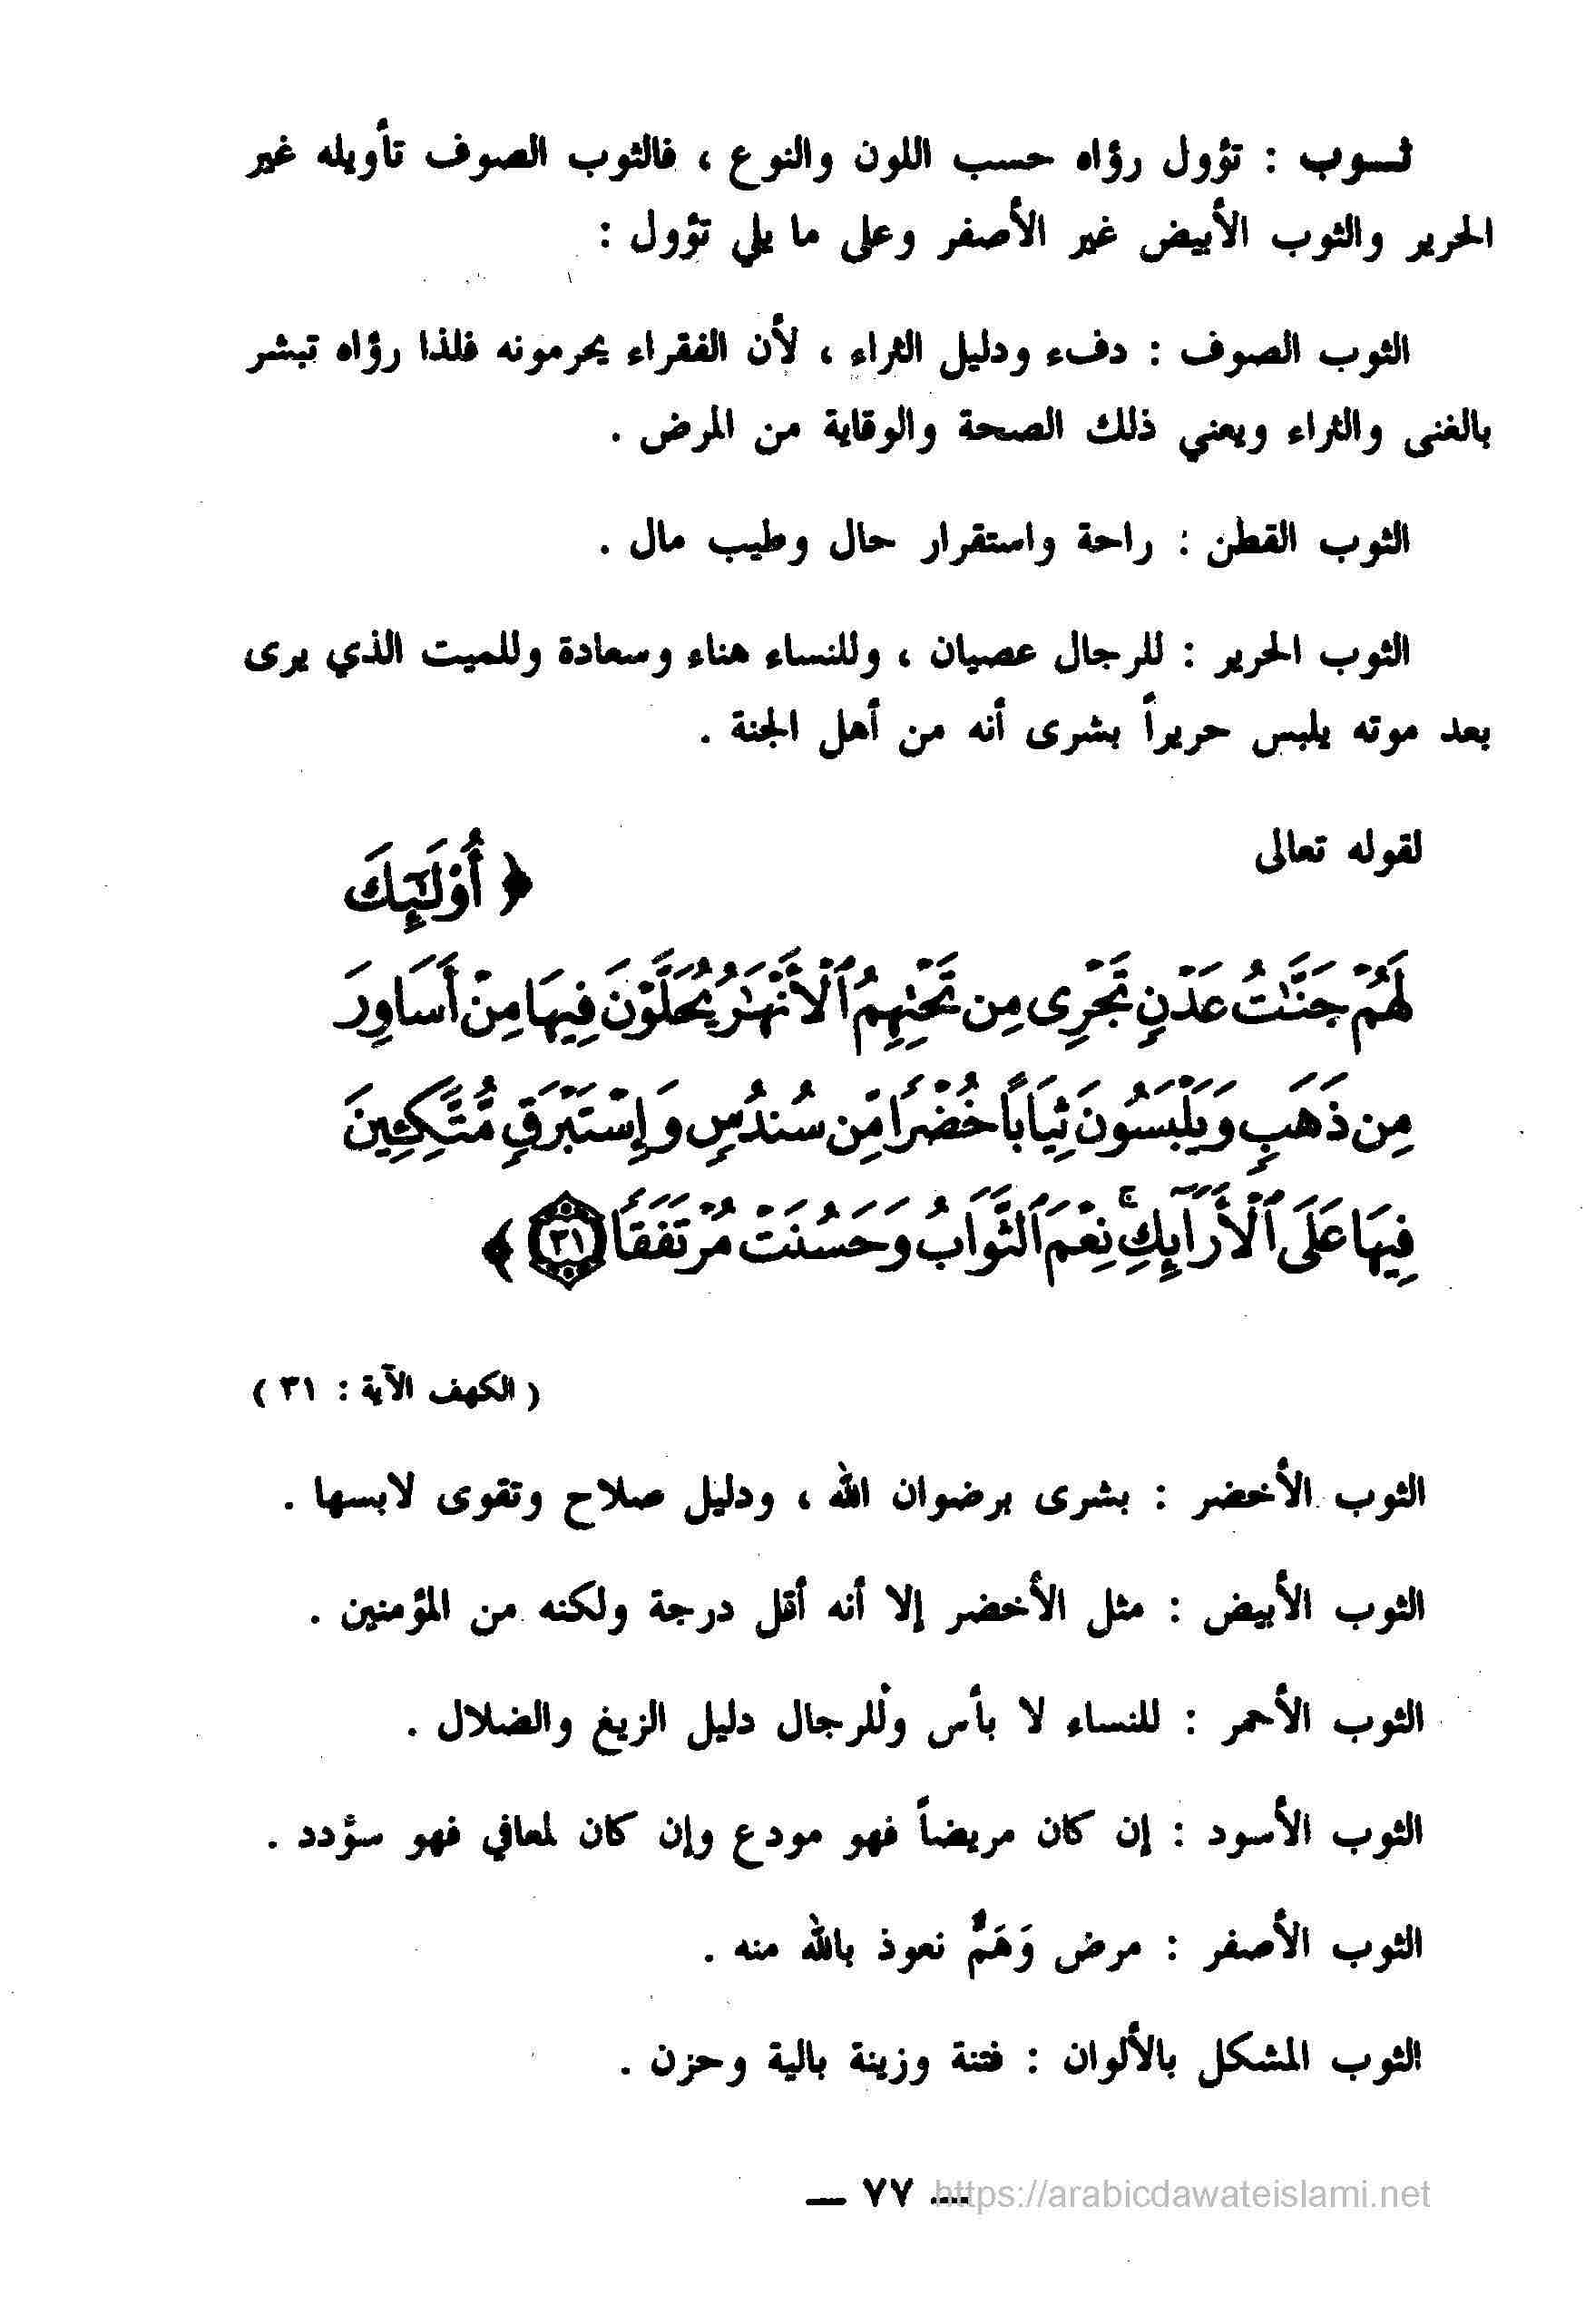 ثوب : تؤول رؤاه حسب اللون والنوع ، فالثوب الصوف تأويله غير
الحرير والثوب الأبيض غير الأصفر وعلى ما يلي تؤول :
الثوب الصوف : دفء ودليل الثراء ، لأن الفقراء يحرمونه فلذا رؤاه تبشر
بالغنى والثراء ويعني ذلك الصحة والوقاية من المرض .
الثوب القطن : راحة واستقرار حال وطيب مال .
الثوب الحرير : للرجال عصيان ، وللنساء هناء وسعادة وللميت الذي يرى
بعد موته يلبس حريراً بشرى أنه من أهل الجنة .
لقوله تعالى ﴿ أُوْلَـٰٓئِكَ
لَهُمْ جَنَّـٰتُ عَدْنٍ تَجْرِى مِن تَحْتِهِمُ ٱلْأَنْهَـٰرُ يُحَلَّوْنَ فِيهَا مِنْ أَسَاوِرَ
مِن ذَهَبٍ وَيَلْبَسُونَ ثِيَابًا خُضْرًا مِّن سُندُسٍ وَإِسْتَبْرَقٍ مُّتَّكِـِٔينَ
فِيهَا عَلَى ٱلْأَرَآئِكِ ۚ نِعْمَ ٱلثَّوَابُ وَحَسُنَتْ مُرْتَفَقًا ٣١ ﴾
( الكهف الآية : ٣١ )
الثوب الأخضر : بشرى برضوان الله ، ودليل صلاح وتقوى لابسها .
الثوب الأبيض : مثل الأخضر إلا أنه أقل درجة ولكنه من المؤمنين .
الثوب الأحمر : للنساء لا بأس وللرجال دليل الزيغ والضلال .
الثوب الأسود : إن كان مريضاً فهو مودع وإن كان لمعافي فهو سؤدد .
الثوب الأصفر : مرض وَهَمٌّ نعوذ بالله منه .
الثوب المشكل بالألوان : فتنة وزينة بالية وحزن .
— ٧٧ —
https://arabicdawateislami.net